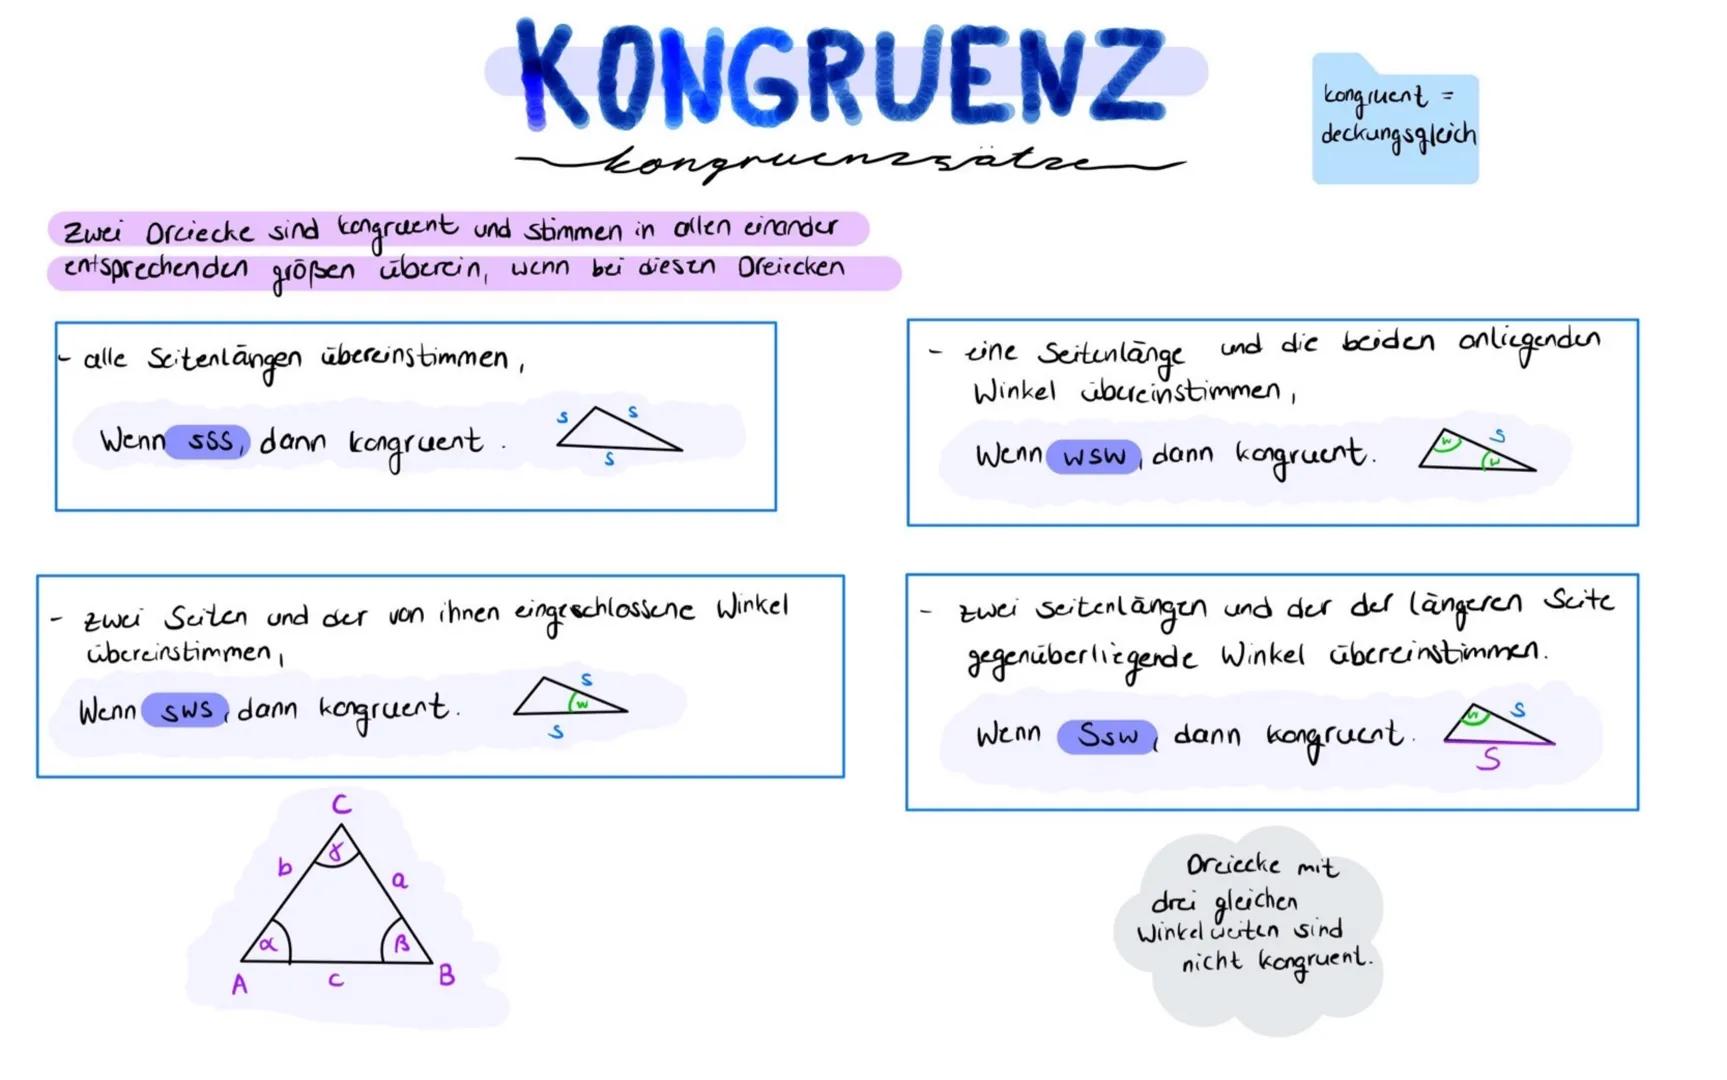 KONGRUENZ
kongruenzsätze
kongruent =
deckungsgleich
Zwei Dreiecke sind kongruent und stimmen in allen einander
entsprechenden größen überein, wenn bei diesen Dreiecken
- alle Seitenlängen übereinstimmen,
Wenn sss, dann kongruent.
s
s
s
- eine Seitenlänge und die beiden anliegenden
Winkel übereinstimmen,
Wenn wsw, dann kongruent.
w
s
w
- zwei Seiten und der von ihnen eingeschlossene Winkel
übereinstimmen,
Wenn sws, dann kongruent.
s
w
s
- zwei seitenlängen und der der längeren Seite
gegenüberliegende Winkel übereinstimmen.
Wenn Ssw, dann kongruent.
w
s
S
C
γ
b
a
α
β
A
c
B
Dreiecke mit
drei gleichen
Winkelweiten sind
nicht kongruent.